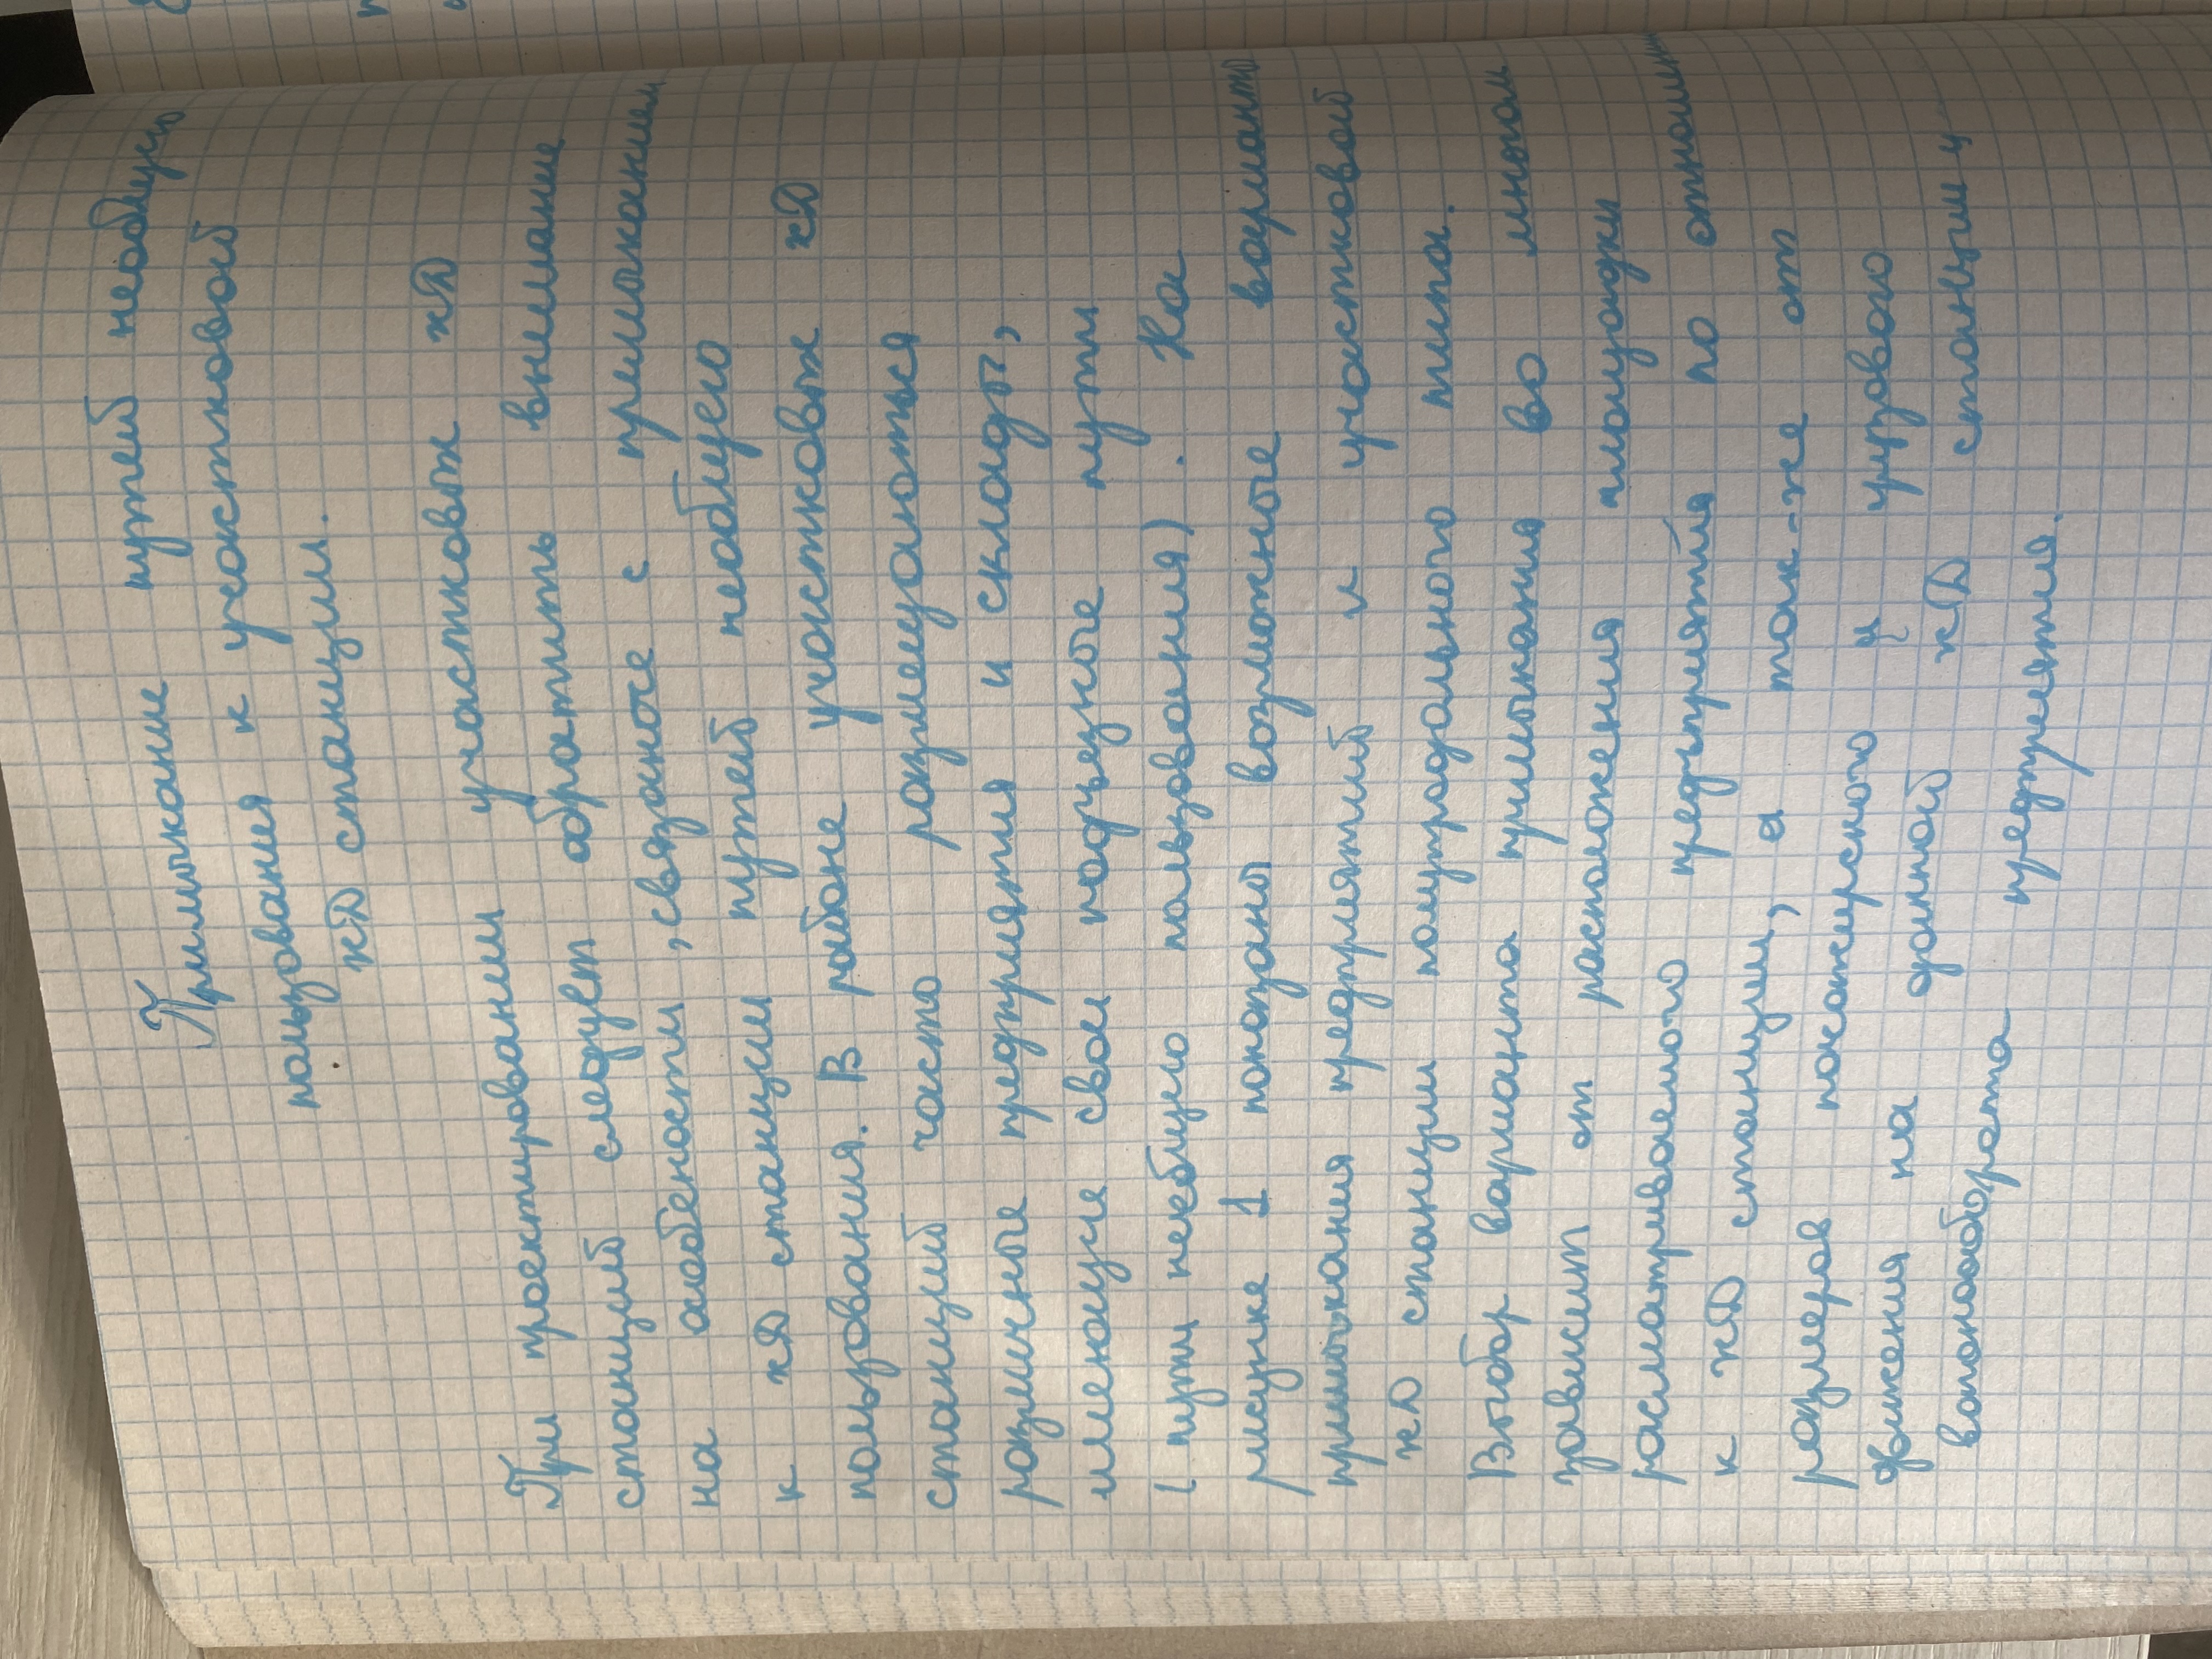 Примыкание путей необщего
пользования к участковой
жД станции.
При проектировании участковых жД
станций следует обратить внимание
на особенности, связаные с примыканием
к жД станции путей необщего
пользования. В районе участковых жД
станций часто размещаются
различные предприятия и склады,
имеющие свои подъездные пути
(пути необщего пользования). На
рисунке 1 показаны возможные варианты
примыкания предприятий к участковой
жД станции полупродольного типа.
Выбор варианта примыкания во многом
зависит от расположения площадки
расматриваемого предприятия по отношению
к жД станции, а так-же от
размеров пасажирского и грузового
движения на данной жД станции и
вагонооборота предприятия.